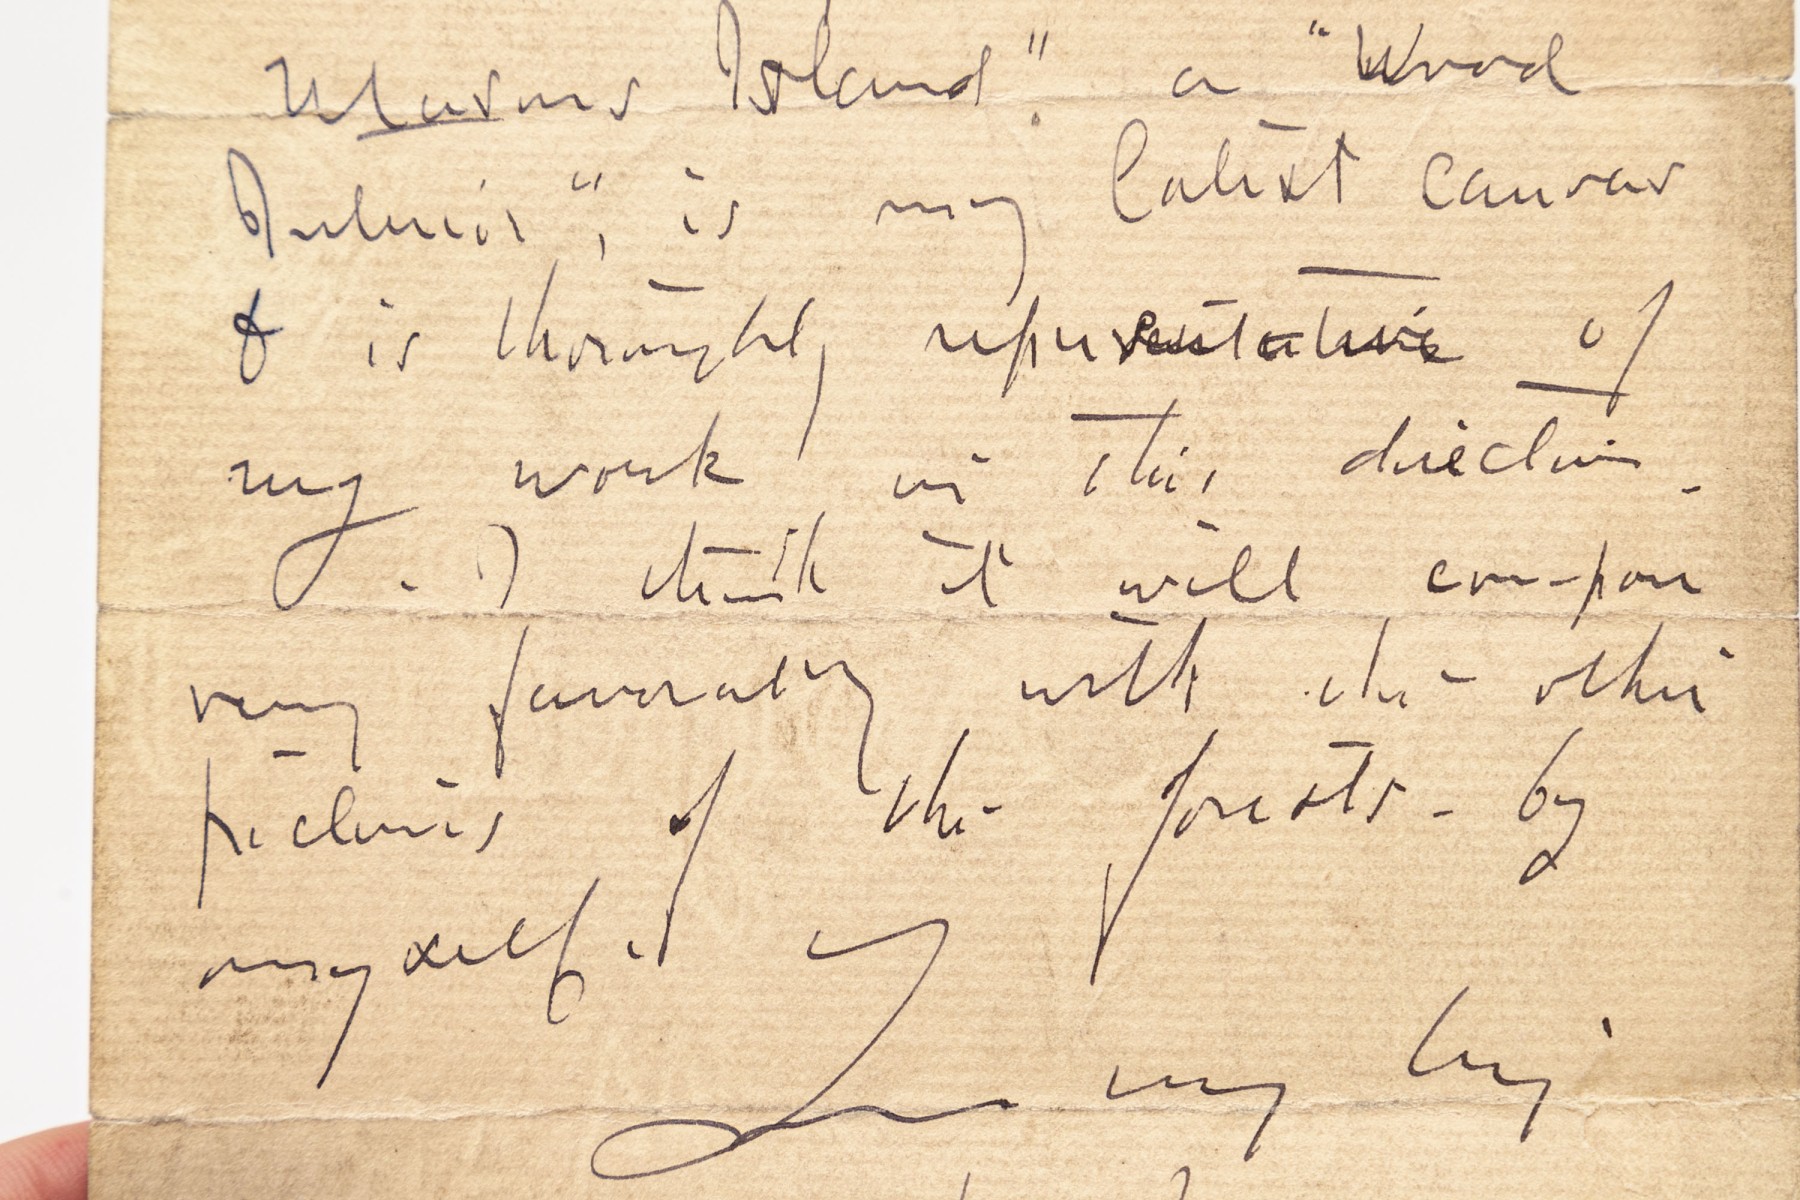 Masons Island". a "Wood
Interior", is my latest canvas
& is thoroughly representative of
my work in this direction.
I think it will compare
very favorably with the other
pictures of the forests - by
myself.
Yours very truly